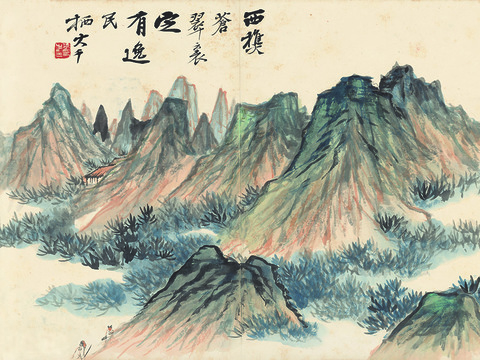 西樵
蒼
翠裏
定
有逸
民
栖大千